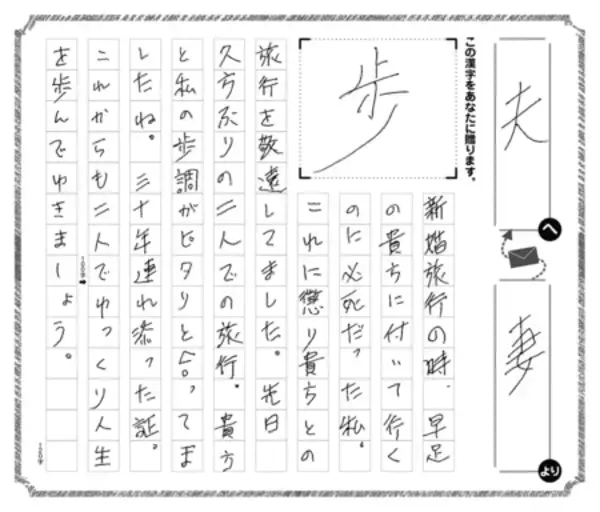 夫
へ
妻
より
この漢字をあなたに贈ります。
歩
新婚旅行の時、早足
の貴方に付いて行く
のに必死だった私。
これに懲り貴方との
旅行を敬遠してました。先日
久方ぶりの二人での旅行。貴方
と私の歩調がピタリと合ってま
したね。三十年連れ添った証。
これからも二人でゆっくり人生
を歩んでゆきましょう。
100字
120字